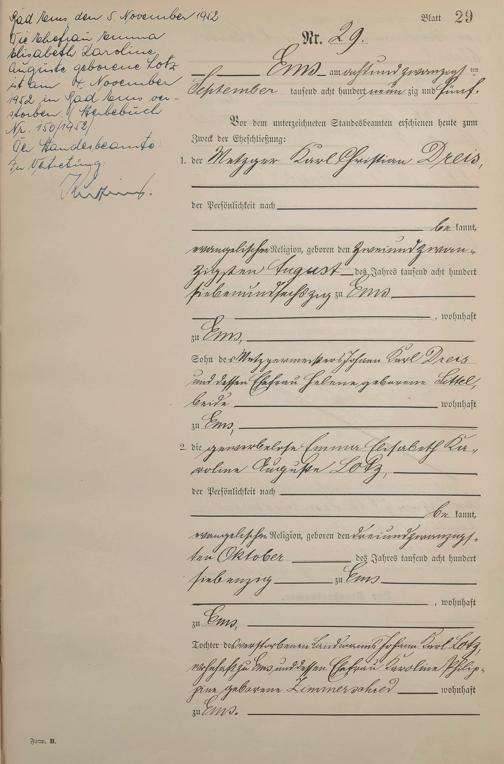 Bad Ems den 5 November 1952
Die Ehefrau Emma
Elisabeth Karoline
Auguste geborene Lotz
ist am 4. November
1952 in Bad Ems ver-
storben (Sterbebuch
Nr. 150/1952)
Der Standesbeamte
In Vertretung
Blatt 29
Nr. 29.
Ems am achtundzwanzigsten
September tausend acht hundert neunzig und fünf.
Vor dem unterzeichneten Standesbeamten erschienen heute zum
Zweck der Eheschließung:
1. der Metzger Karl Christian Dreis,
der Persönlichkeit nach
be kannt,
evangelischer Religion, geboren den zweiundzwan-
zigsten August des Jahres tausend acht hundert
siebenundsechszig zu Ems
, wohnhaft
zu Ems,
Sohn des Metzgermeisters Johann Karl Dreis
und dessen Ehefrau Helene geborene
beide wohnhaft
zu Ems,
2. die gewerbelose Emma Elisabeth Ka-
roline Auguste Lotz,
der Persönlichkeit nach
be kannt,
evangelischer Religion, geboren den dreiundzwanzigs-
ten Oktober des Jahres tausend acht hundert
siebenzig zu Ems
, wohnhaft
zu Ems,
Tochter des verstorbenen Landmanns Johann Karl Lotz,
wohnhaft zu Ems, und dessen Ehefrau Karoline Philip-
pine geborene Zimmerschied wohnhaft
zu Ems.
Form. B.